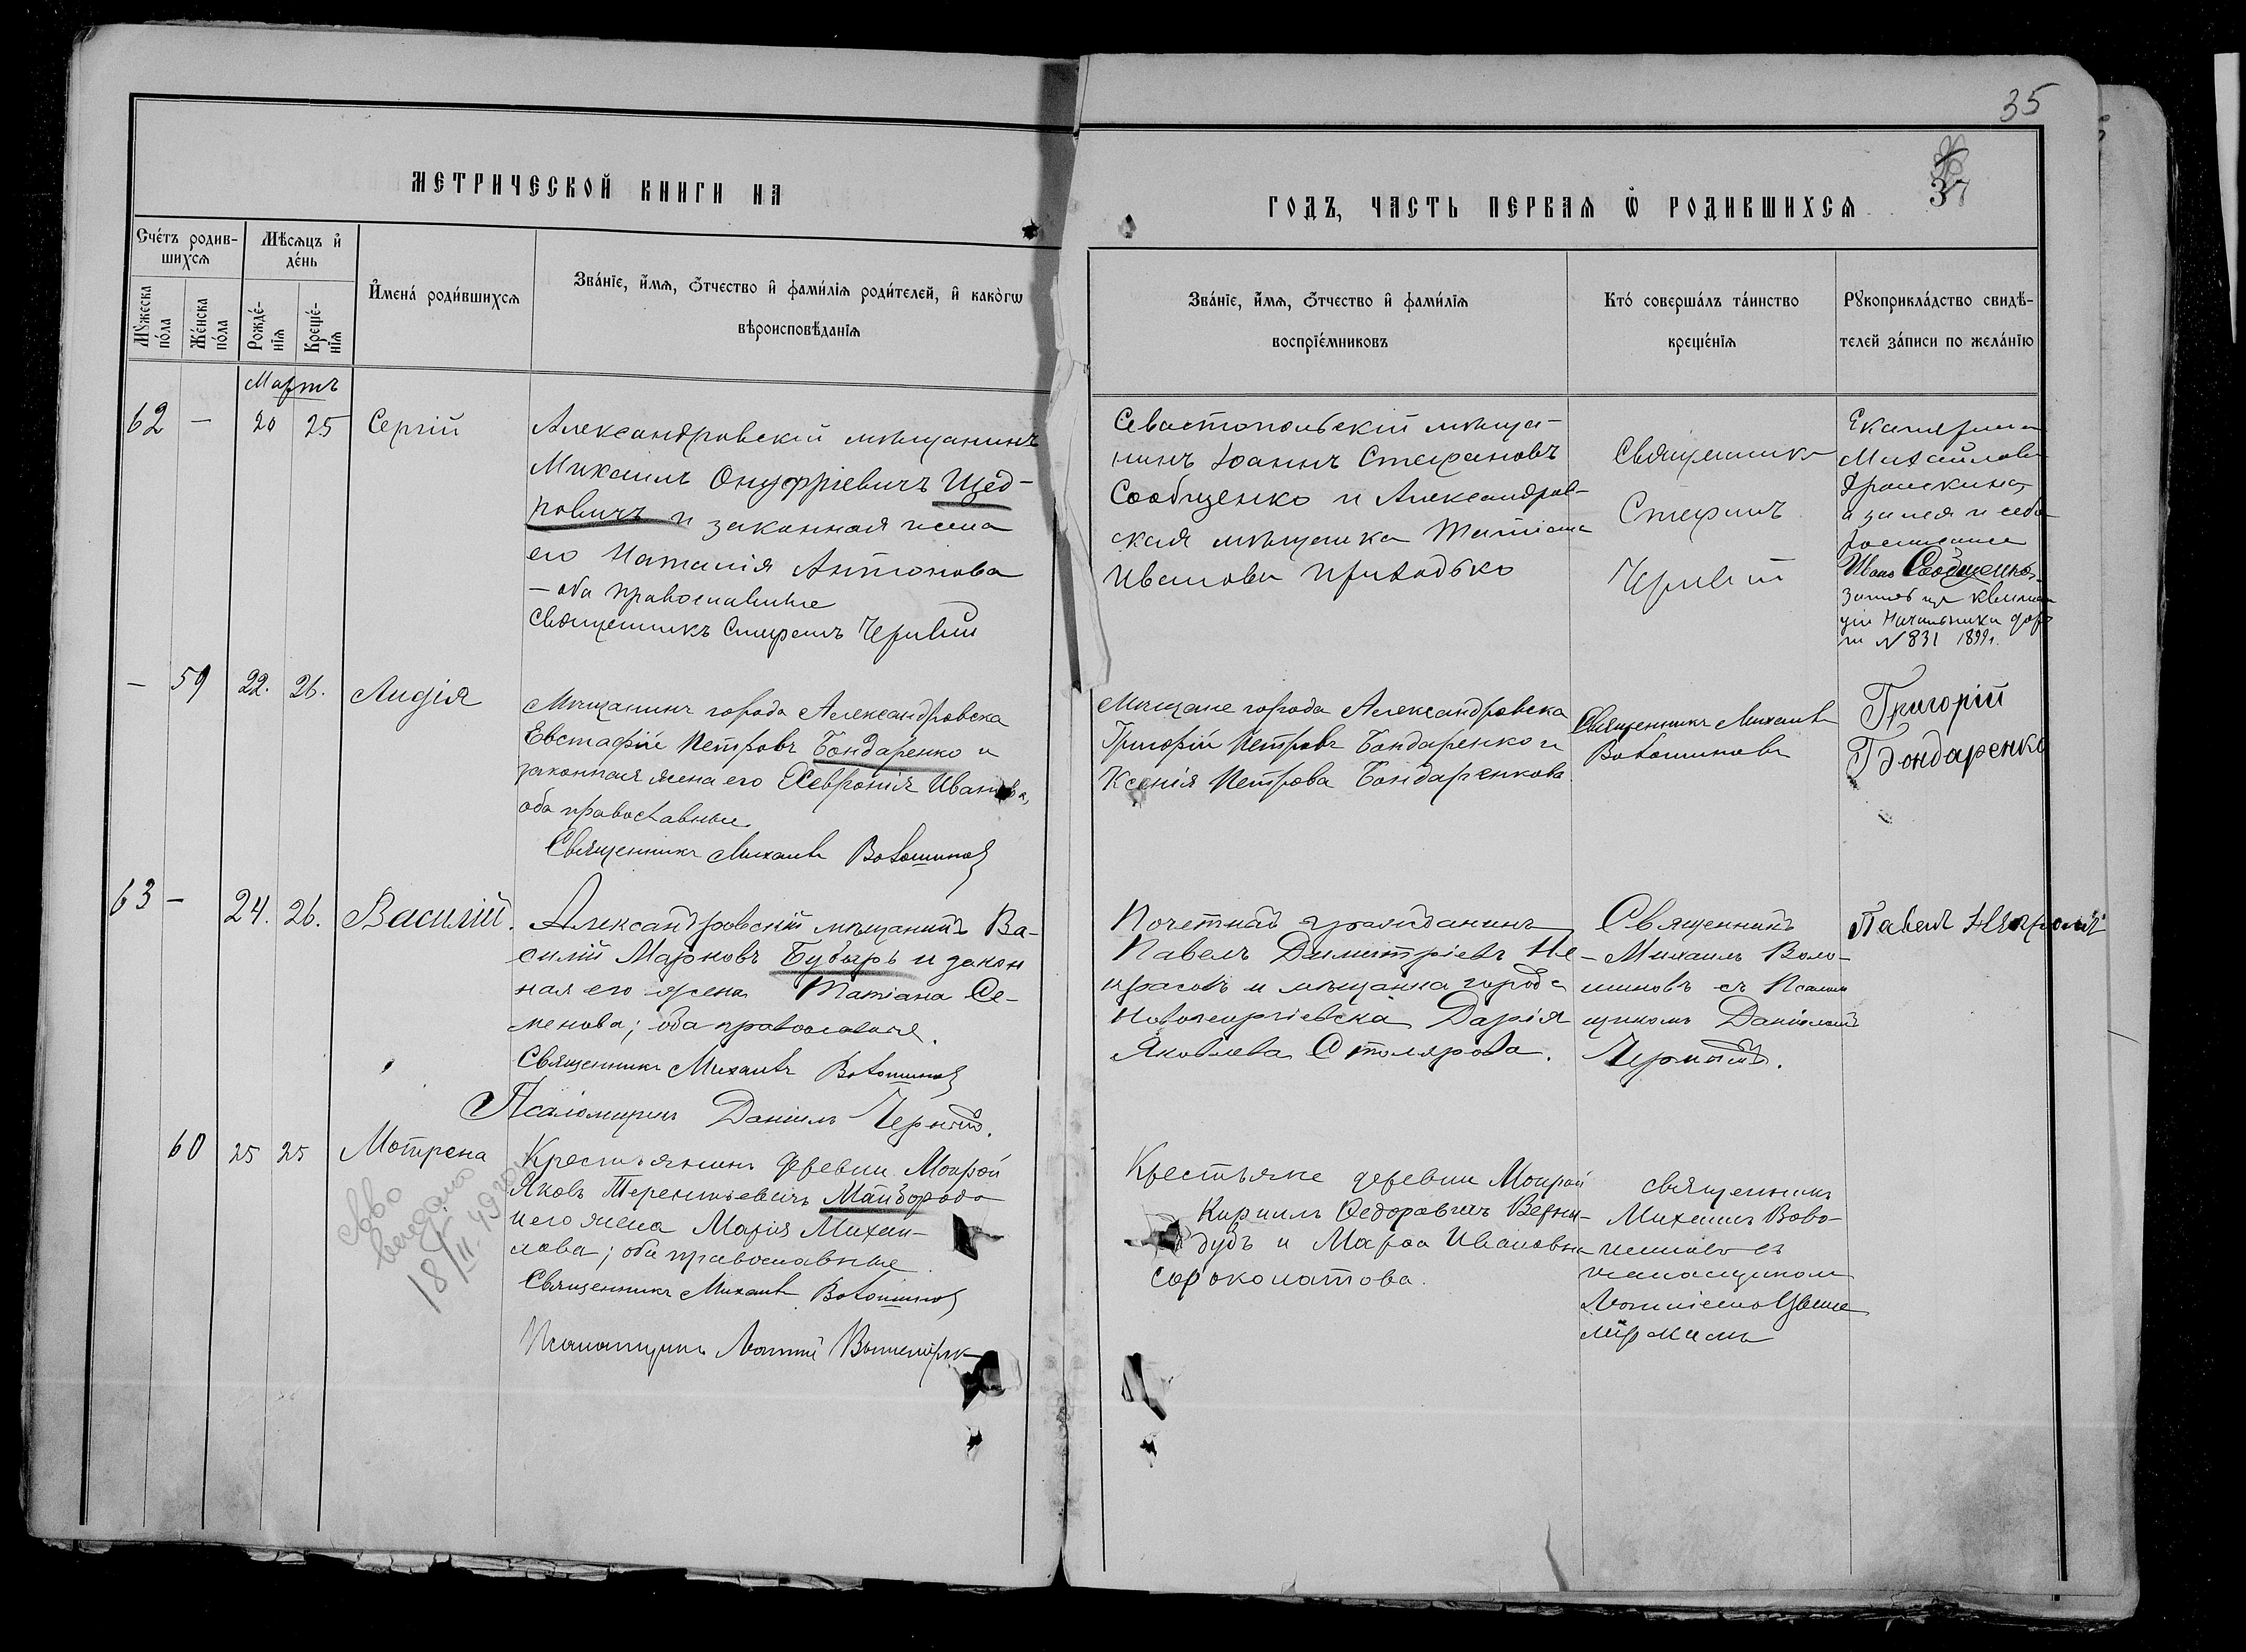 35
37
МЕТРИЧЕСКОЙ КНИГИ НА
ГОДЪ, ЧАСТЬ ПЕРВАЯ Ѿ РОДИВШИХСѦ
Счéтъ родив-
шихсѧ
Мѣсѧцъ и҆
дéнь
Мꙋжеска
пóла
Жéнска
пóла
Рождé-
нїѧ
Крещé-
нїѧ
И҆мена́ роди́вшихсѧ
Зва́нїе, и҆́мѧ, ѻ҆́тчество и҆ фами́лїѧ роди́телей, и҆ како́гѡ
вѣроисповѣ́данїѧ
Зва́нїе, и҆́мѧ, ѻ҆́тчество и҆ фами́лїѧ
воспрїе́мниковъ
Кто́ соверша́лъ та́инство
креще́нїѧ
Рꙋкоприкла́дство свидѣ́-
телей за́писи по жела́нїю
Мартъ
62 — 20 25 Сергій
Александровскій мѣщанинъ
Михаилъ Онуфріевичъ Щед-
ровичъ и законная жена
его Наталія Антонова
— оба православные
Священникъ Стефанъ
Севастопольскій мѣща-
нинъ Іоаннъ Стефановъ
Сообщенко и Александров-
ская мѣщанка Татіана
Иванова Приходько
Священникъ
Стефанъ
Екатерина
Михайлова
а за нея и себя
росписался
Иванъ Сообщенко
№ 831 1899 г.
— 59 22. 26. Лидія
Мѣщанинъ города Александровска
Евстафій Петровъ Бондаренко и
законная жена его Февронія Иванова,
оба православные
Священникъ Михаилъ Волошиновъ
Мѣщане города Александровска
Григорій Петровъ Бондаренко и
Ксенія Петрова Бондаренкова
Священникъ Михаилъ
Волошиновъ
Григорій
Бондаренко
63 — 24. 26. Василій.
Александровскій мѣщанинъ Ва-
силій Марковъ Бубырь и закон
ная его жена Татіана Се-
менова; оба православные.
Священникъ Михаилъ Волошиновъ
Псаломщикъ Даніилъ Черный.
Почетный гражданинъ
Павелъ Димитріевъ Не-
красовъ и мѣщанка города
Новогеоргіевска Дарія
Яковлева Столярова.
Священникъ
Михаилъ Воло-
шиновъ съ Псалом
щикомъ Даніиломъ
Чернымъ.
Павелъ
60 25 25 Мотрона
Крестьянинъ деревни Мокрой
Яковъ Терентьевичъ Майборода
и его жена Марія Михаи-
лова; оба православные
Священникъ Михаилъ Волошиновъ
Псаломщикъ
Крестьяне деревни Мокрой
Кириллъ Федоровичъ Верни-
дубъ и Марѳа Ивановна
Сороколатова.
Священникъ
Михаилъ Воло-
шиновъ съ
псаломщикомъ
св-во
выдано
18/II